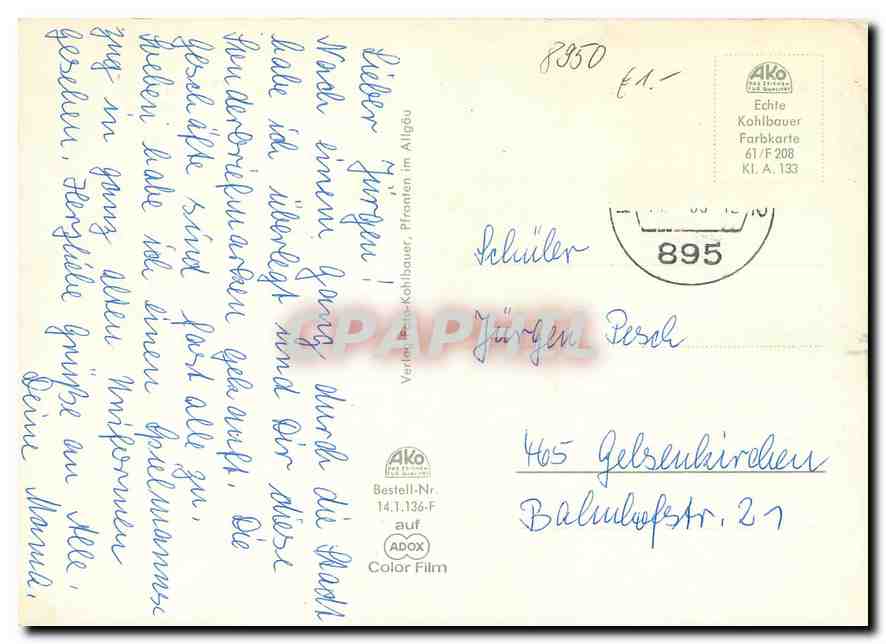 Lieber Jürgen!
Nach einem Gang durch die Stadt
habe ich überlegt und Dir diese
Sonderbriefmarken gekauft. Die
Geschäfte sind fast alle zu.
Soeben habe ich einen Spielmanns
zug in ganz alten Uniformen
gesehen. Herzliche Grüße an Alle.
Deine Mama.
Verlag Foto-Kohlbauer, Pfronten im Allgäu
AKO
DAS ZEICHEN
FÜR QUALITÄT
Bestell-Nr.
14.1.136-F
auf
ADOX
Color Film
8950
€1.-
AKO
DAS ZEICHEN
FÜR QUALITÄT
Echte
Kohlbauer
Farbkarte
61/F 208
Kl. A. 133
895
Schüler
Jürgen Pesch
465 Gelsenkirchen
Bahnhofstr. 21
CPAPHIL